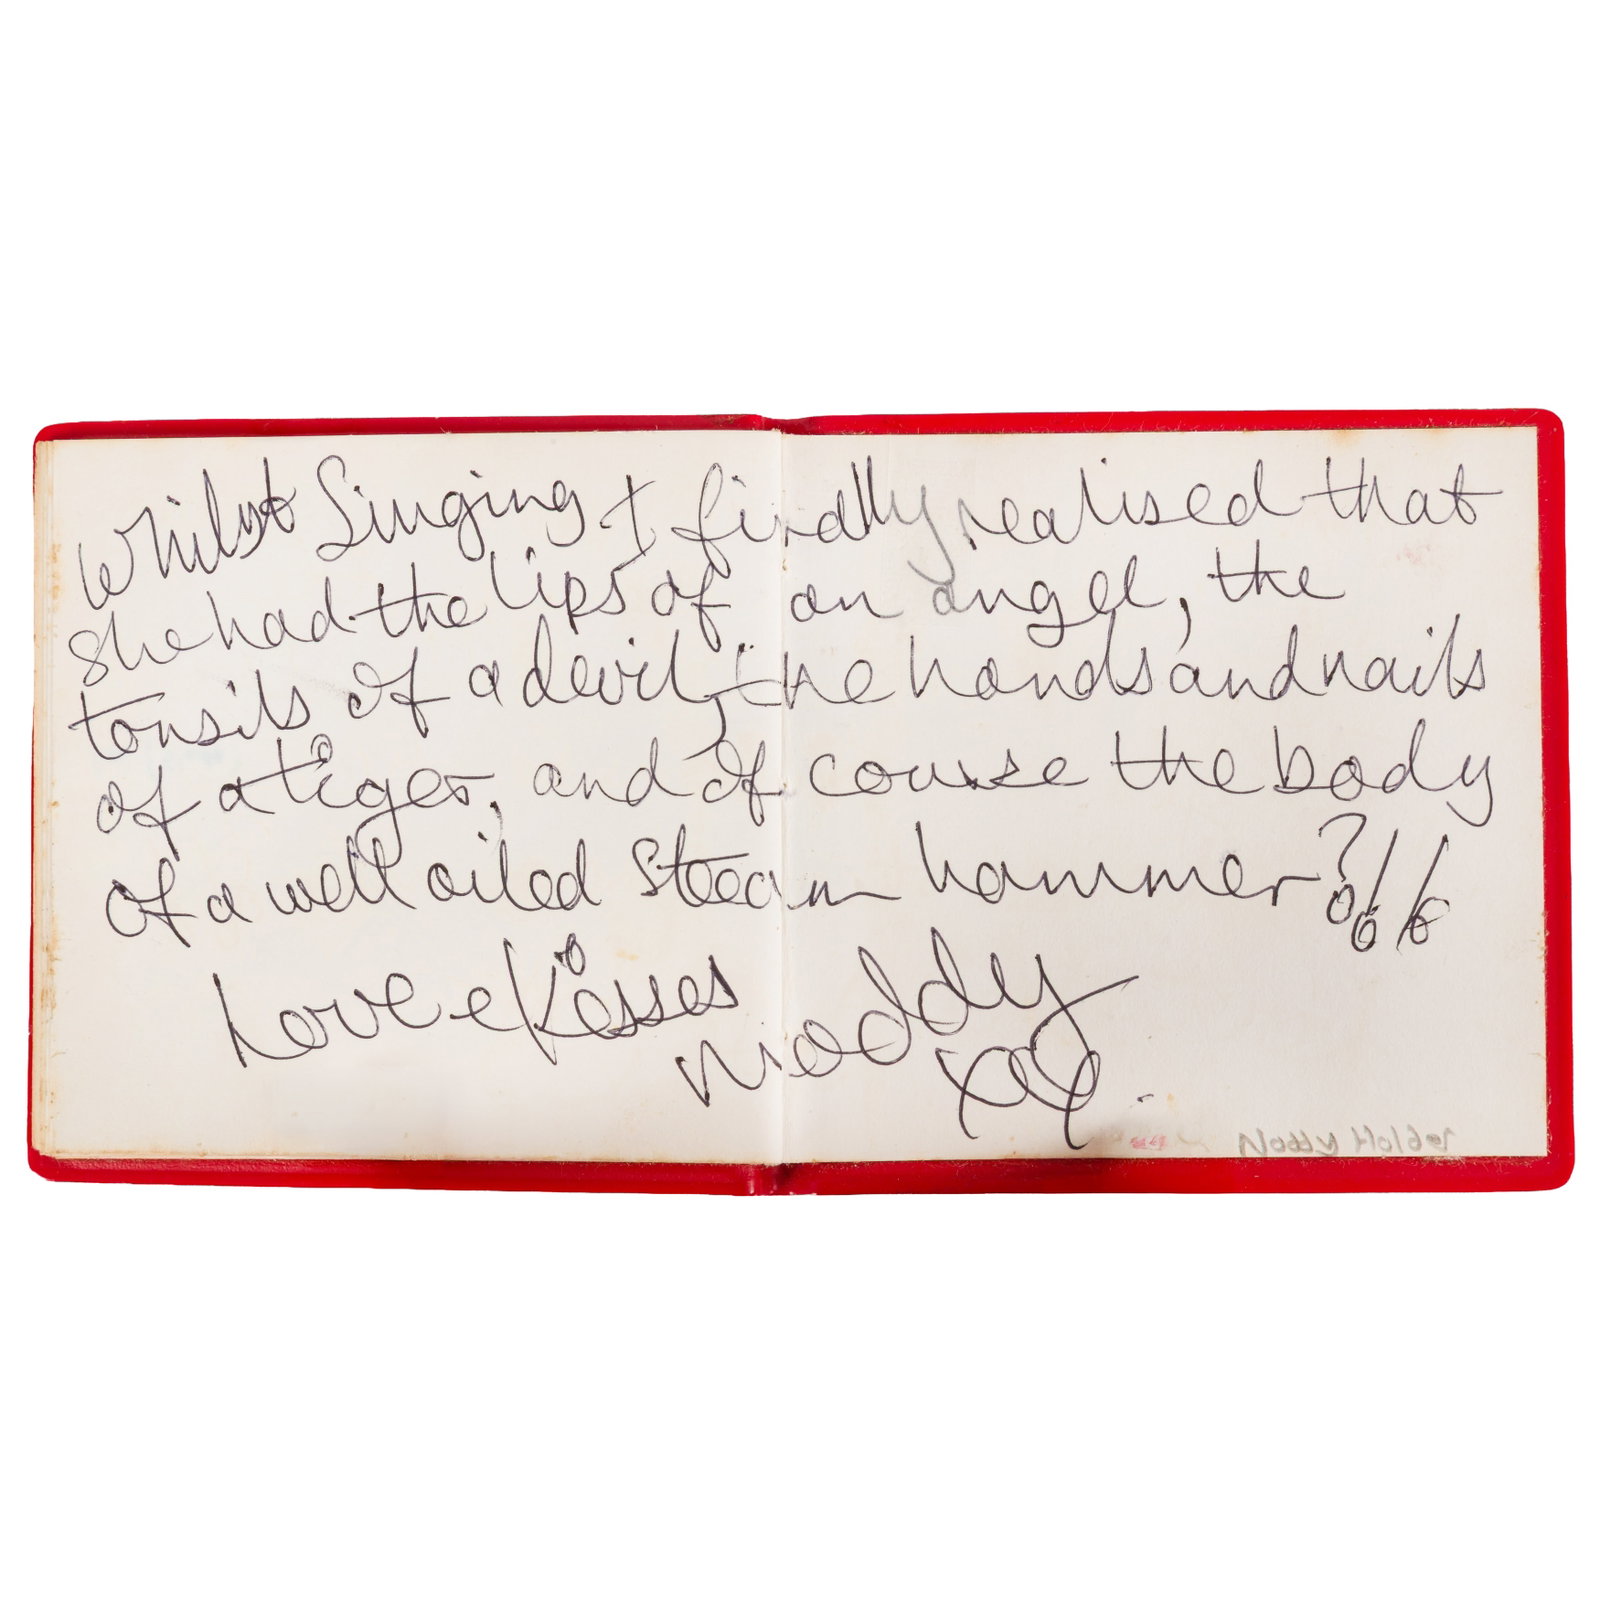 Whilst Singing I finally realised that
she had the lips of an angel, the
tonsils of a devil, the hands and nails
of a tiger, and of course the body
of a well oiled steam hammer?!!
Love e Kisses
Noddy
xxx.
Noddy Holder